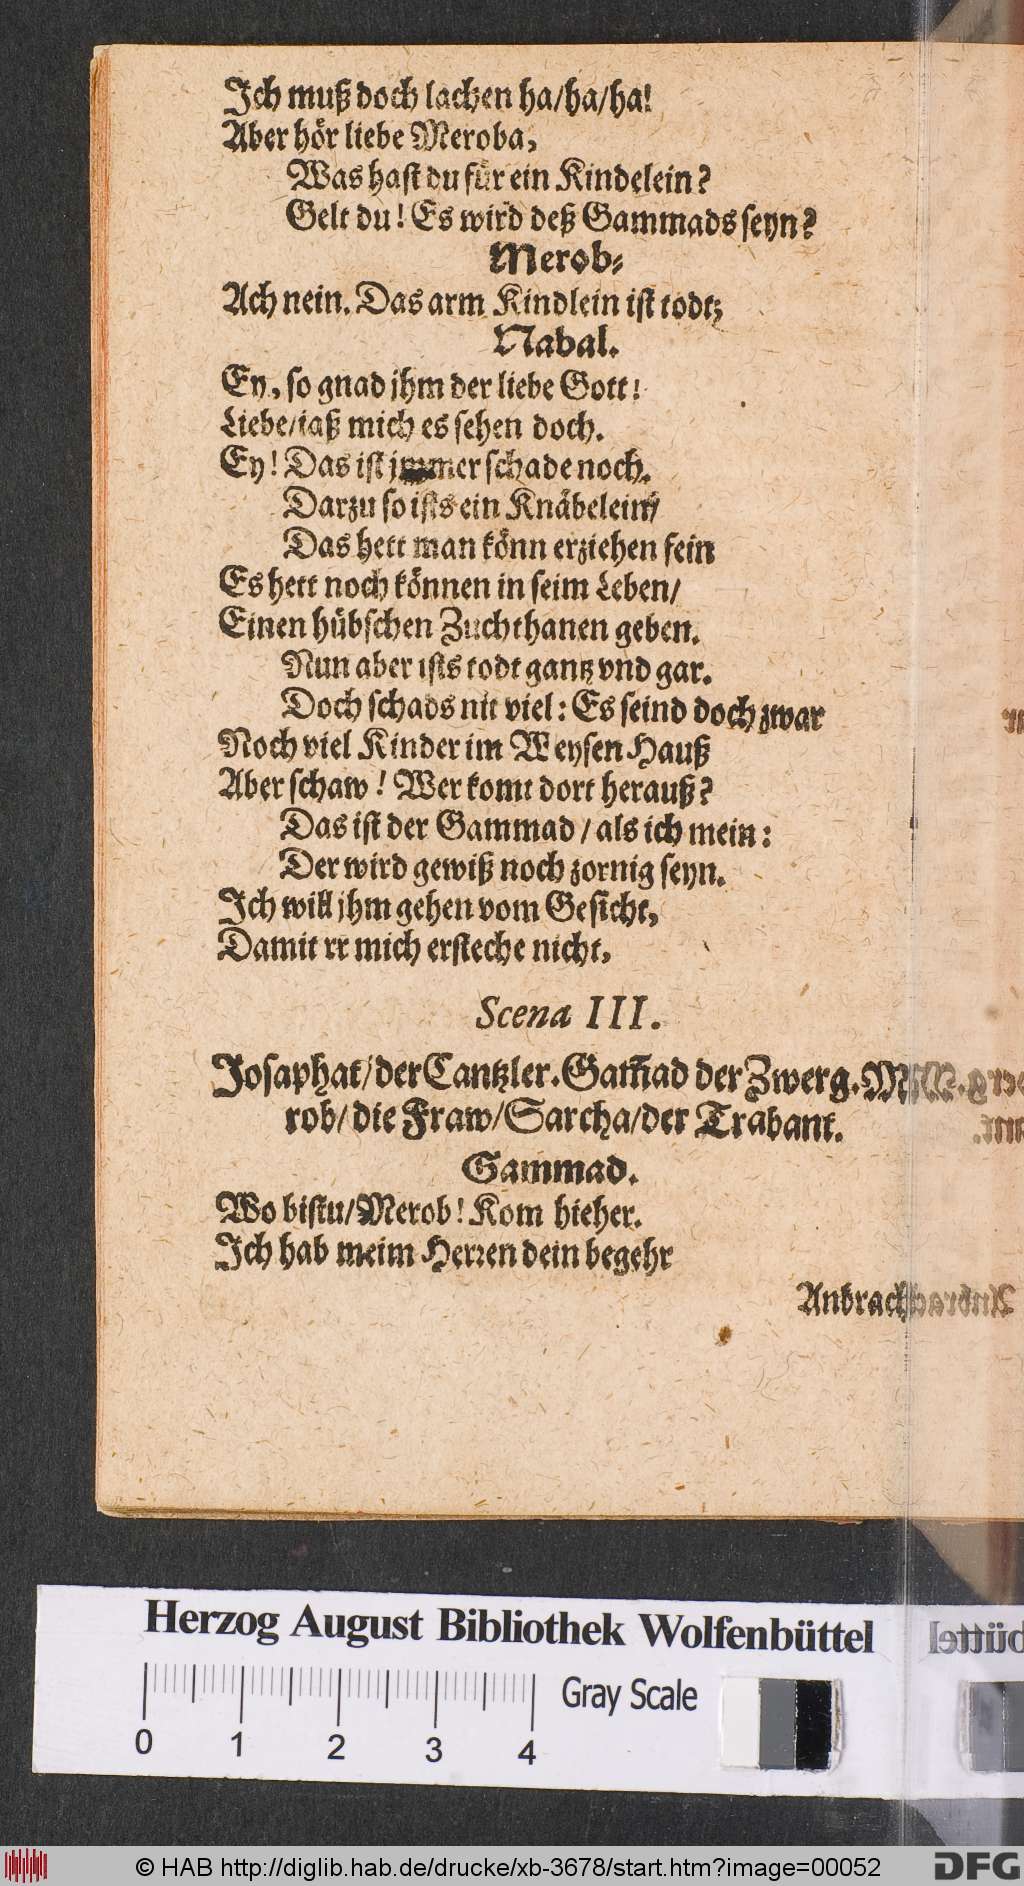 Ich muß doch lachen ha/ha/ha!
Aber hör liebe Meroba,
Was hast du für ein Kindelein?
Gelt du! Es wird deß Gammads seyn?
Merob⸗
Ach nein. Das arm Kindlein ist todt;
Nabal.
Ey, so gnad jhm der liebe Gott!
Liebe/laß mich es sehen doch.
Ey! Das ist jmmer schade noch.
Darzu so ists ein Knäbelein/
Das hett man könn erziehen fein
Es hett noch können in seim Leben/
Einen hübschen Zuchthanen geben.
Nun aber ists todt gantz vnd gar.
Doch schads nit viel: Es seind doch zwar
Noch viel Kinder im Weysen Hauß
Aber schaw! Wer komt dort herauß?
Das ist der Gammad/als ich mein:
Der wird gewiß noch zornig seyn.
Ich will jhm gehen vom Gesicht,
Damit rr mich ersteche nicht,
Scena III.
Josaphat/der Cantzler. Gam̄ad der Zwerg. Me⸗
rob/die Fraw/Sarcha/der Trabant.
Gammad.
Wo bistu/Merob! Kom hieher.
Ich hab meim Herren dein begehr
Anbrach
Herzog August Bibliothek Wolfenbüttel
0 1 2 3 4
Gray Scale
© HAB http://diglib.hab.de/drucke/xb-3678/start.htm?image=00052
DFG